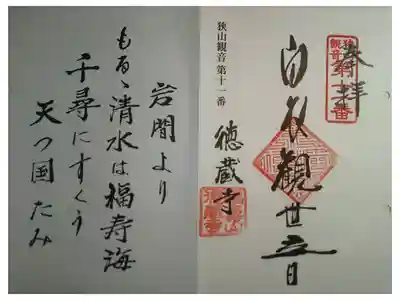 奉拝
狭山観音第十一番
白衣観世音
狭山観音第十一番
徳蔵寺
岩間より
もるゝ清水は福寿海
千尋にすくう
天つ国たみ